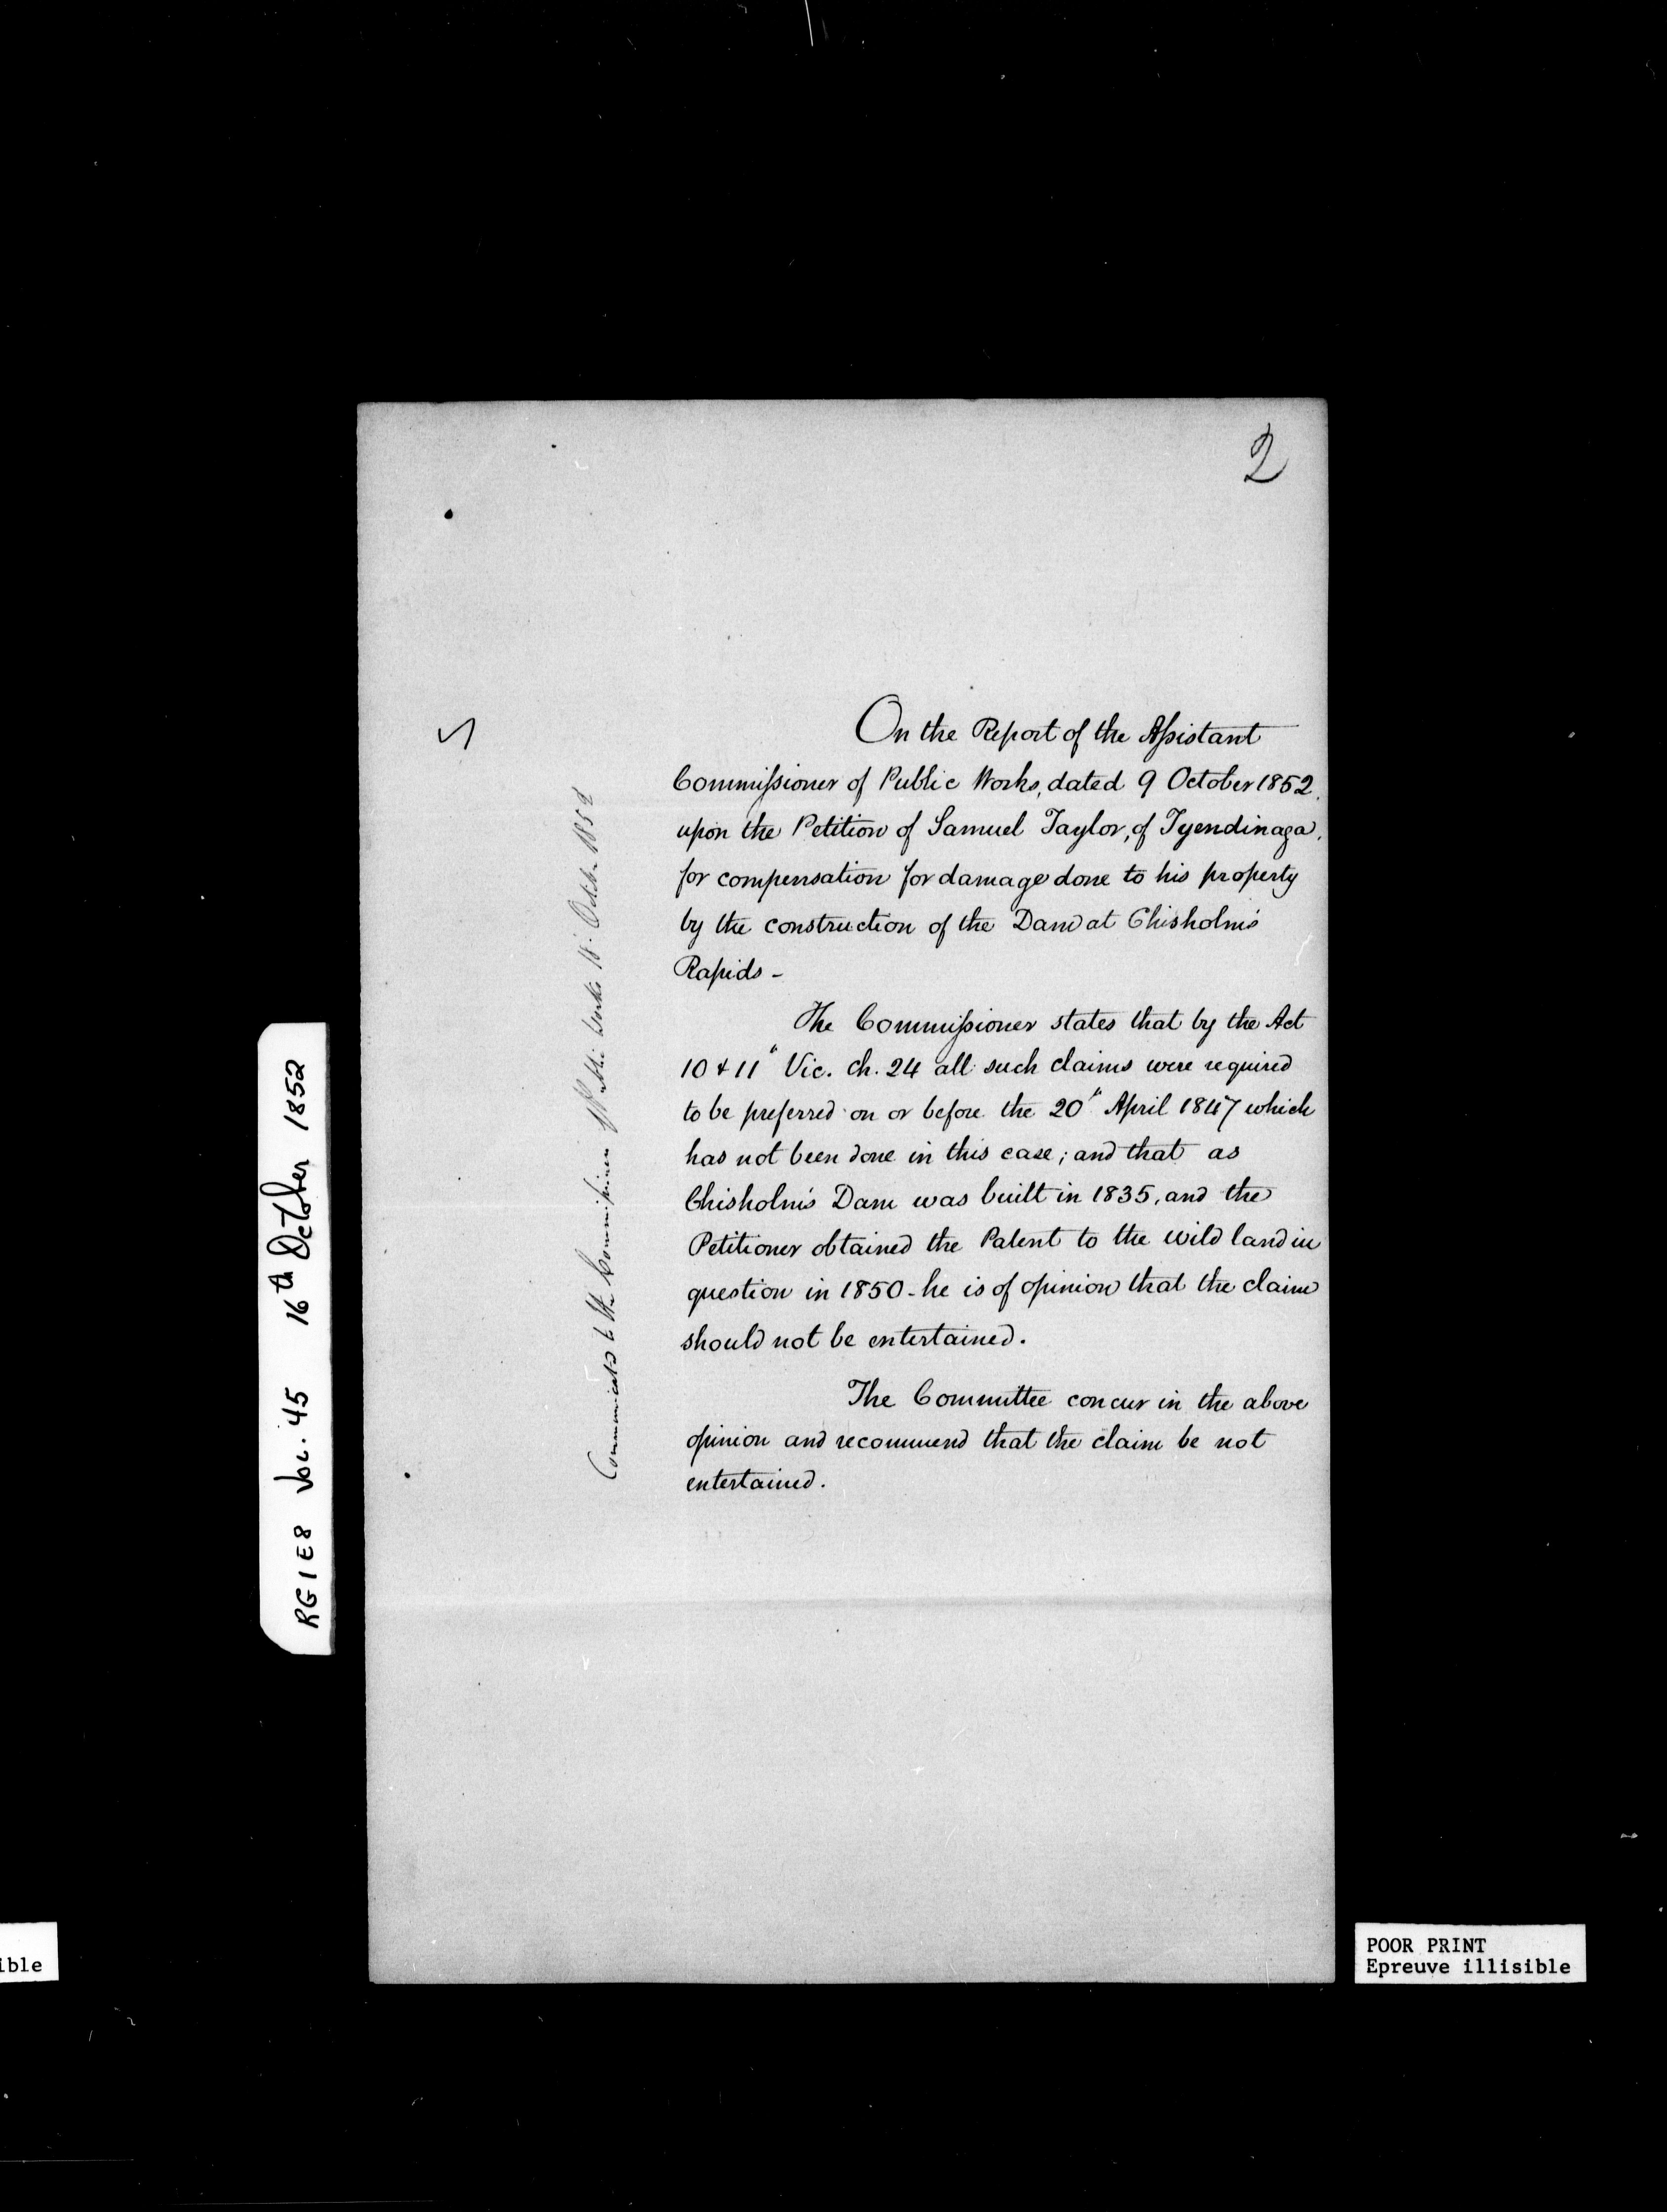 2
On the Report of the Assistant
Commissioner of Public Works, dated 9 October 1852.
upon the Petition of Samuel Taylor, of Tyendinaga,
for compensation for damage done to his property
by the construction of the Dam at Chisholm's
Rapids -
The Commissioner states that by the Act
10 & 11" Vic. ch. 24 all such claims were required
to be preferred on or before the 20" April 1847 which
has not been done in this case; and that as
Chisholm's Dam was built in 1835, and the
Petitioner obtained the Patent to the wild land in
question in 1850 - he is of opinion that the claim
should not be entertained.
The Committee concur in the above
opinion and recommend that the claim be not
entertained.
Communicated to the Commissioner Public Works 18. Octobr 1852
RG1E8 VOL. 45 16th October 1852
ible
POOR PRINT
Epreuve illisible